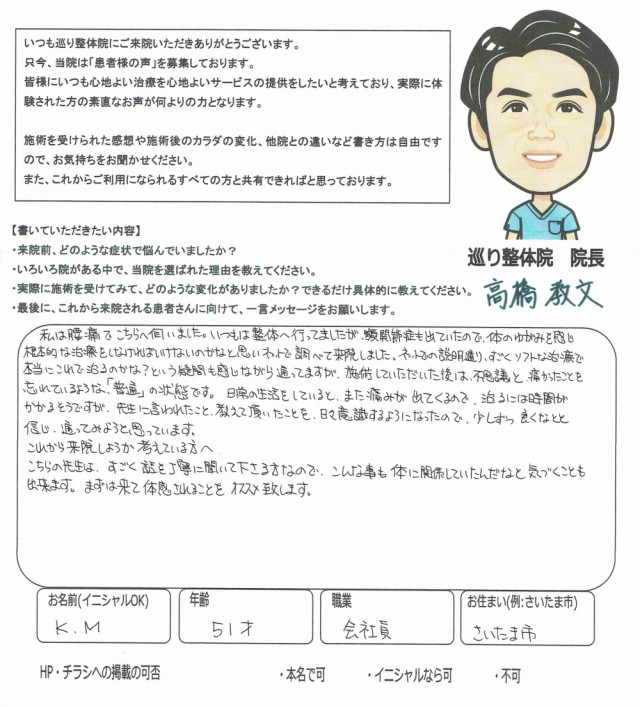 いつも巡り整体院にご来院いただきありがとうございます。
只今、当院は「患者様の声」を募集しております。
皆様にいつも心地よい治療を心地よいサービスの提供をしたいと考えており、実際に体
験された方の素直なお声が何よりの力となります。
施術を受けられた感想や施術後のカラダの変化、他院との違いなど書き方は自由です
ので、お気持ちをお聞かせください。
また、これからご利用になられるすべての方と共有できればと思っております。
巡り整体院 院長
高橋 教文
【書いていただきたい内容】
・来院前、どのような症状で悩んでいましたか？
・いろいろ院がある中で、当院を選ばれた理由を教えてください。
・実際に施術を受けてみて、どのような変化がありましたか？できるだけ具体的に教えてください。
・最後に、これから来院される患者さんに向けて、一言メッセージをお願いします。
私は腰痛でこちらへ伺いました。いつもは整体へ行ってましたが、顎関節症も出ていたので、体のゆがみを感じ
根本的な治療をしなければいけないのかなと思いネットで調べて来院しました。ネットでの説明通り、すごくソフトな治療で
本当にこれで治るのかな？という疑問も感じながら通ってますが、施術していただいた後は、不思議と、痛かったことを
忘れているような、「普通」の状態です。日常の生活をしていると、また痛みが出てくるので、治るには時間が
かかるそうですが、先生に言われたこと、教えて頂いたことを、日々意識するようになったので、少しずつ良くなると
信じ、通ってみようと思っています。
これから来院しようか考えている方へ
こちらの先生は、すごく話を丁寧に聞いて下さる方なので、こんな事も体に関係していたんだなと気づくことも
出来ます。まずは来て体感されることをオススメ致します。
お名前(イニシャルOK)
K.M
年齢
51才
職業
会社員
お住まい(例:さいたま市)
さいたま市
HP・チラシへの掲載の可否 ・本名で可 ・イニシャルなら可 ・不可